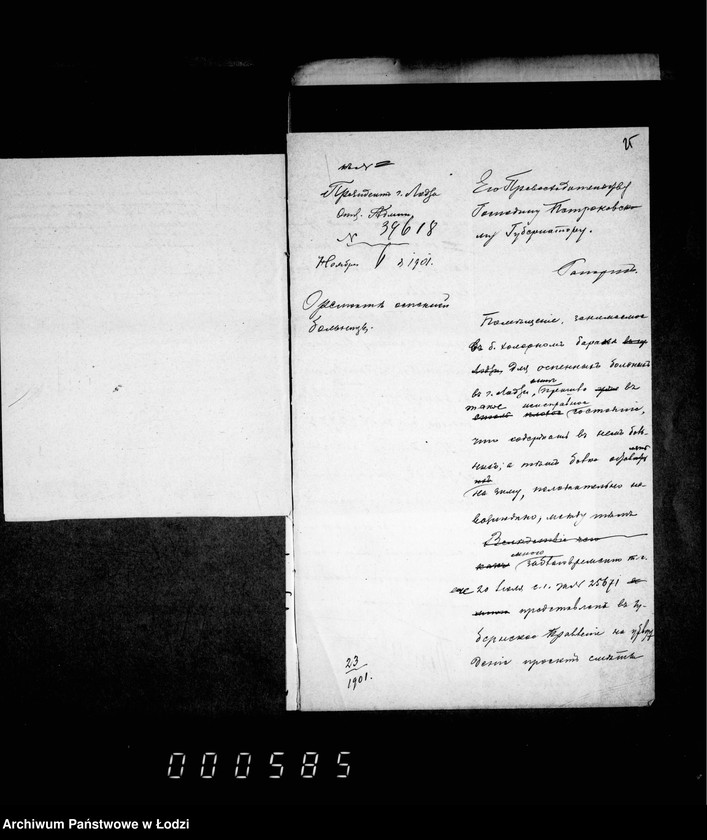 25
Президент г. Лодзи
Отд. Админ.
№ 39618
Ноября 1901.
О ремонте оспенной
больницы.
23
1901.
Его Превосходительству
Господину Петроковско-
му Губернатору.
Рапорт.
Помещение, занимаемое
въ б. холерномъ бараке
Лодзи, для оспенныхъ больныхъ
въ г. Лодзи, пришло въ
такое неисправное состояніе,
что содержать въ немъ боль-
ныхъ, а темъ более
на зиму, положительно не
возможно, между темъ
Вследствіе
мною заблаговременно т. е.
еще 20 Іюля с. г. за № 25671
представленъ въ Гу-
бернское Правленіе на утверж-
деніе проектъ сметы
000585
Archiwum Państwowe w Łodzi